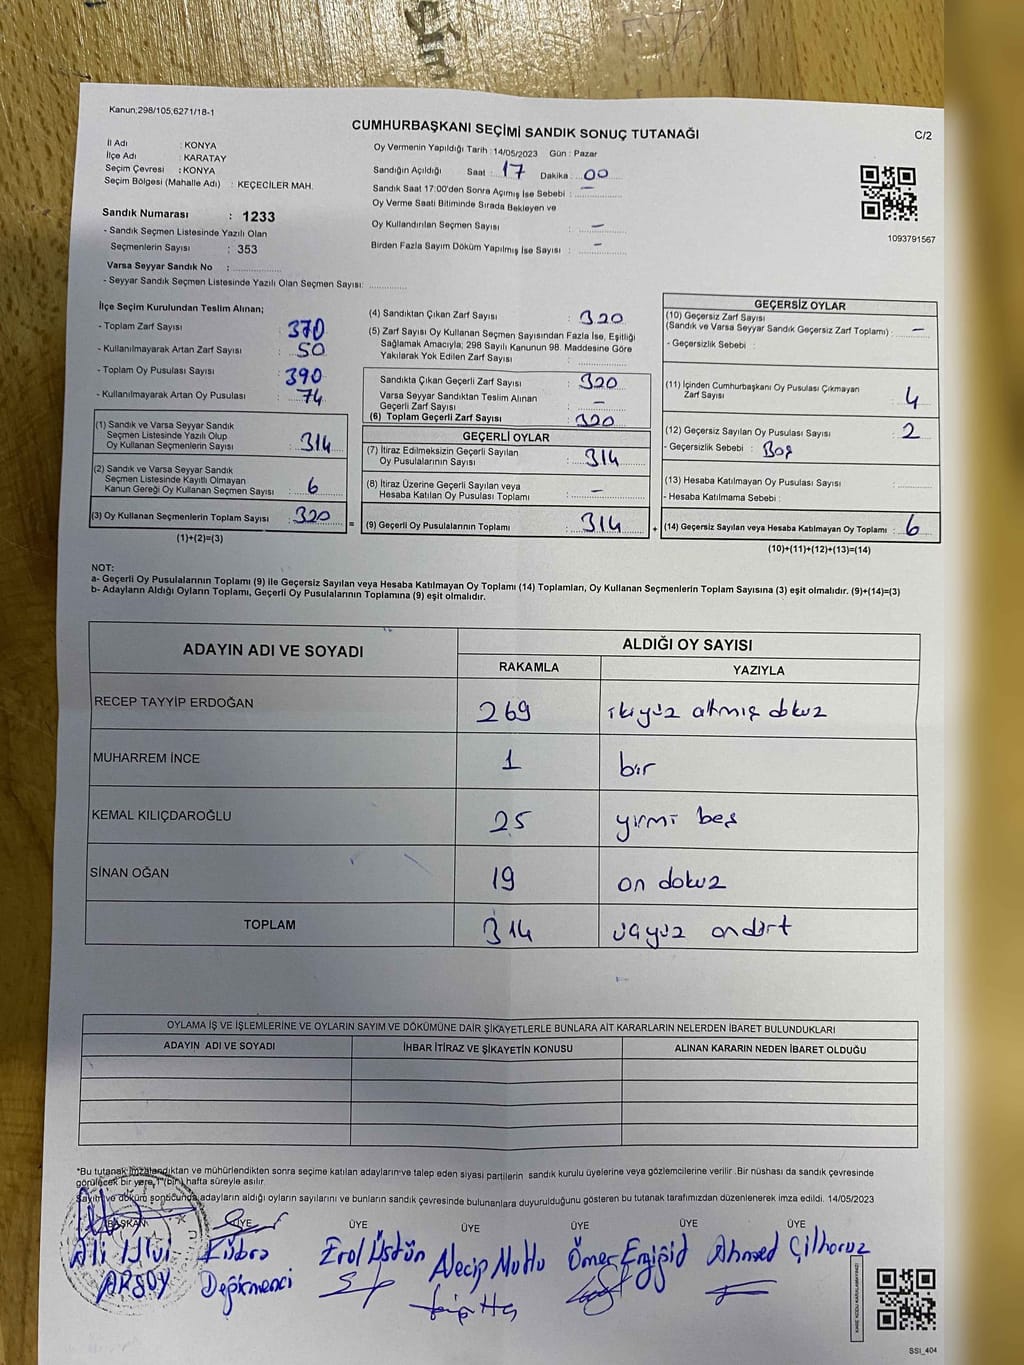 Kanun;298/105;6271/18-1
CUMHURBAŞKANI SEÇİMİ SANDIK SONUÇ TUTANAĞI
C/2
İl Adı : KONYA
İlçe Adı : KARATAY
Seçim Çevresi : KONYA
Seçim Bölgesi (Mahalle Adı) : KEÇECİLER MAH.
Oy Vermenin Yapıldığı Tarih : 14/05/2023 Gün : Pazar
Sandığın Açıldığı Saat : 17 Dakika : 00
Sandık Saat 17:00'den Sonra Açımış İse Sebebi : –
Oy Verme Saati Bitiminde Sırada Bekleyen ve
Oy Kullandırılan Seçmen Sayısı : –
Birden Fazla Sayım Döküm Yapılmış İse Sayısı : –
1093791567
Sandık Numarası : 1233
- Sandık Seçmen Listesinde Yazılı Olan
Seçmenlerin Sayısı : 353
Varsa Seyyar Sandık No : ..............
- Seyyar Sandık Seçmen Listesinde Yazılı Olan Seçmen Sayısı: ............
İlçe Seçim Kurulundan Teslim Alınan;
- Toplam Zarf Sayısı : 370
- Kullanılmayarak Artan Zarf Sayısı : 50
- Toplam Oy Pusulası Sayısı : 390
- Kullanılmayarak Artan Oy Pusulası : 74
(1) Sandık ve Varsa Seyyar Sandık
Seçmen Listesinde Yazılı Olup
Oy Kullanan Seçmenlerin Sayısı : 314
(2) Sandık ve Varsa Seyyar Sandık
Seçmen Listesinde Kayıtlı Olmayan
Kanun Gereği Oy Kullanan Seçmen Sayısı : 6
(3) Oy Kullanan Seçmenlerin Toplam Sayısı : 320
(1)+(2)=(3)
=
(4) Sandıktan Çıkan Zarf Sayısı : 320
(5) Zarf Sayısı Oy Kullanan Seçmen Sayısından Fazla İse, Eşitliği
Sağlamak Amacıyla; 298 Sayılı Kanunun 98. Maddesine Göre
Yakılarak Yok Edilen Zarf Sayısı :
Sandıkta Çıkan Geçerli Zarf Sayısı : 320
Varsa Seyyar Sandıktan Teslim Alınan
Geçerli Zarf Sayısı : –
(6) Toplam Geçerli Zarf Sayısı : 320
GEÇERLİ OYLAR
(7) İtiraz Edilmeksizin Geçerli Sayılan
Oy Pusulalarının Sayısı : 314
(8) İtiraz Üzerine Geçerli Sayılan veya
Hesaba Katılan Oy Pusulası Toplamı : –
(9) Geçerli Oy Pusulalarının Toplamı : 314
+
GEÇERSİZ OYLAR
(10) Geçersiz Zarf Sayısı
(Sandık ve Varsa Seyyar Sandık Geçersiz Zarf Toplamı) : –
- Geçersizlik Sebebi :
(11) İçinden Cumhurbaşkanı Oy Pusulası Çıkmayan
Zarf Sayısı : 4
(12) Geçersiz Sayılan Oy Pusulası Sayısı : 2
- Geçersizlik Sebebi : Boş
(13) Hesaba Katılmayan Oy Pusulası Sayısı :
- Hesaba Katılmama Sebebi :
(14) Geçersiz Sayılan veya Hesaba Katılmayan Oy Toplamı : 6
(10)+(11)+(12)+(13)=(14)
NOT:
a- Geçerli Oy Pusulalarının Toplamı (9) ile Geçersiz Sayılan veya Hesaba Katılmayan Oy Toplamı (14) Toplamları, Oy Kullanan Seçmenlerin Toplam Sayısına (3) eşit olmalıdır. (9)+(14)=(3)
b- Adayların Aldığı Oyların Toplamı, Geçerli Oy Pusulalarının Toplamına (9) eşit olmalıdır.
ADAYIN ADI VE SOYADI
ALDIĞI OY SAYISI
RAKAMLA YAZIYLA
RECEP TAYYİP ERDOĞAN 269 ikiyüz altmış dokuz
MUHARREM İNCE 1 bir
KEMAL KILIÇDAROĞLU 25 yirmi beş
SİNAN OĞAN 19 on dokuz
TOPLAM 314 üçyüz ondört
OYLAMA İŞ VE İŞLEMLERİNE VE OYLARIN SAYIM VE DÖKÜMÜNE DAİR ŞİKAYETLERLE BUNLARA AİT KARARLARIN NELERDEN İBARET BULUNDUKLARI
ADAYIN ADI VE SOYADI İHBAR İTİRAZ VE ŞİKAYETİN KONUSU ALINAN KARARIN NEDEN İBARET OLDUĞU
*Bu tutanak imzalandıktan ve mühürlendikten sonra seçime katılan adayların ve talep eden siyasi partilerin sandık kurulu üyelerine veya gözlemcilerine verilir. Bir nüshası da sandık çevresinde
görülecek bir yere 1 (bir) hafta süreyle asılır.
Sayım ve döküm sonucunda adayların aldığı oyların sayılarını ve bunların sandık çevresinde bulunanlara duyurulduğunu gösteren bu tutanak tarafımızdan düzenlenerek imza edildi. 14/05/2023
BAŞKAN ÜYE ÜYE ÜYE ÜYE ÜYE ÜYE
Ali Kübra Erol Üstün Necip Mutlu Ömer Ahmed Çilhoroz
ARSOY Değirmenci
KARE KODU KARALAMAYINIZ!
SSI_404